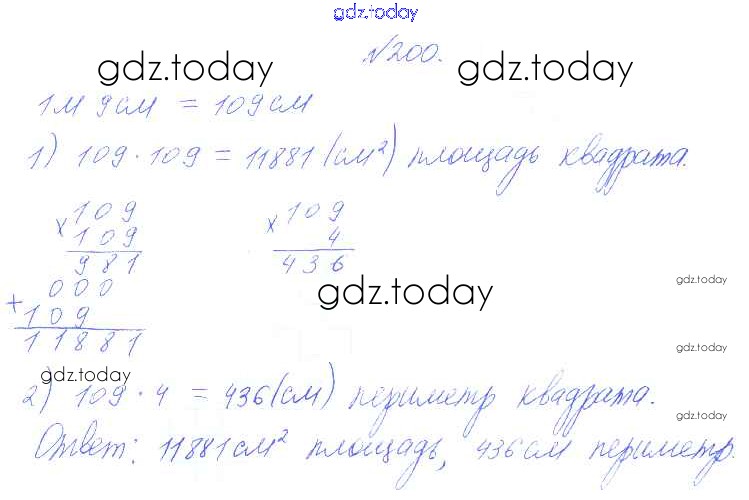 gdz.today
№200.
gdz.today gdz.today
1м 9см = 109см
1) 109 · 109 = 11881 (см²) площадь квадрата.
× 109 × 109
109 4
981 436
000
gdz.today
+ 109
gdz.today
11881
gdz.today
gdz.today
2) 109 · 4 = 436 (см) периметр квадрата.
gdz.today
Ответ: 11881 см² площадь, 436 см периметр.